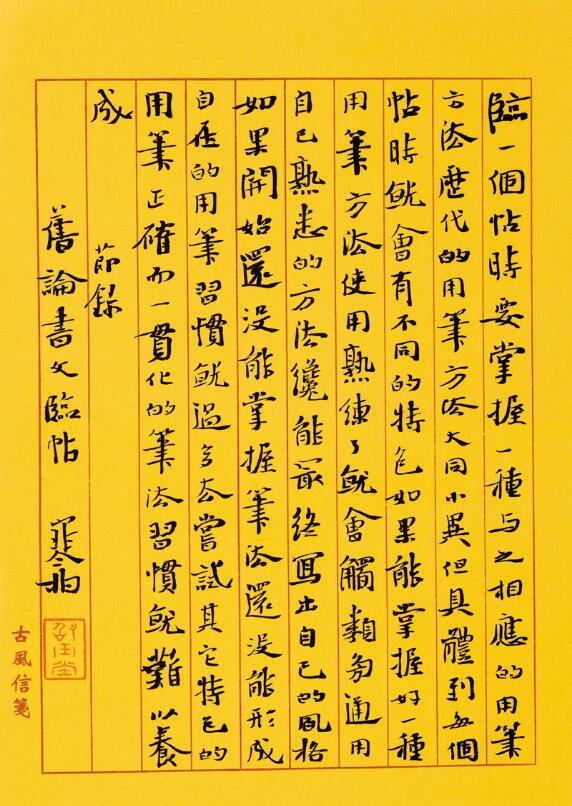 臨一個帖時要掌握一種与之相應的用筆
方法歷代的用筆方法大同小異但具體到每個
帖時就會有不同的特色如果能掌握好一種
用筆方法使用熟練了就會觸類旁通用
自己熟悉的方法纔能最終寫出自己的風格
如果開始還沒能掌握筆法還沒能形成
自的用筆習慣就過多去嘗試其它特色的
用筆正確而一貫化的筆法習慣就難以養
成 節錄
舊論書文臨帖
古風信箋